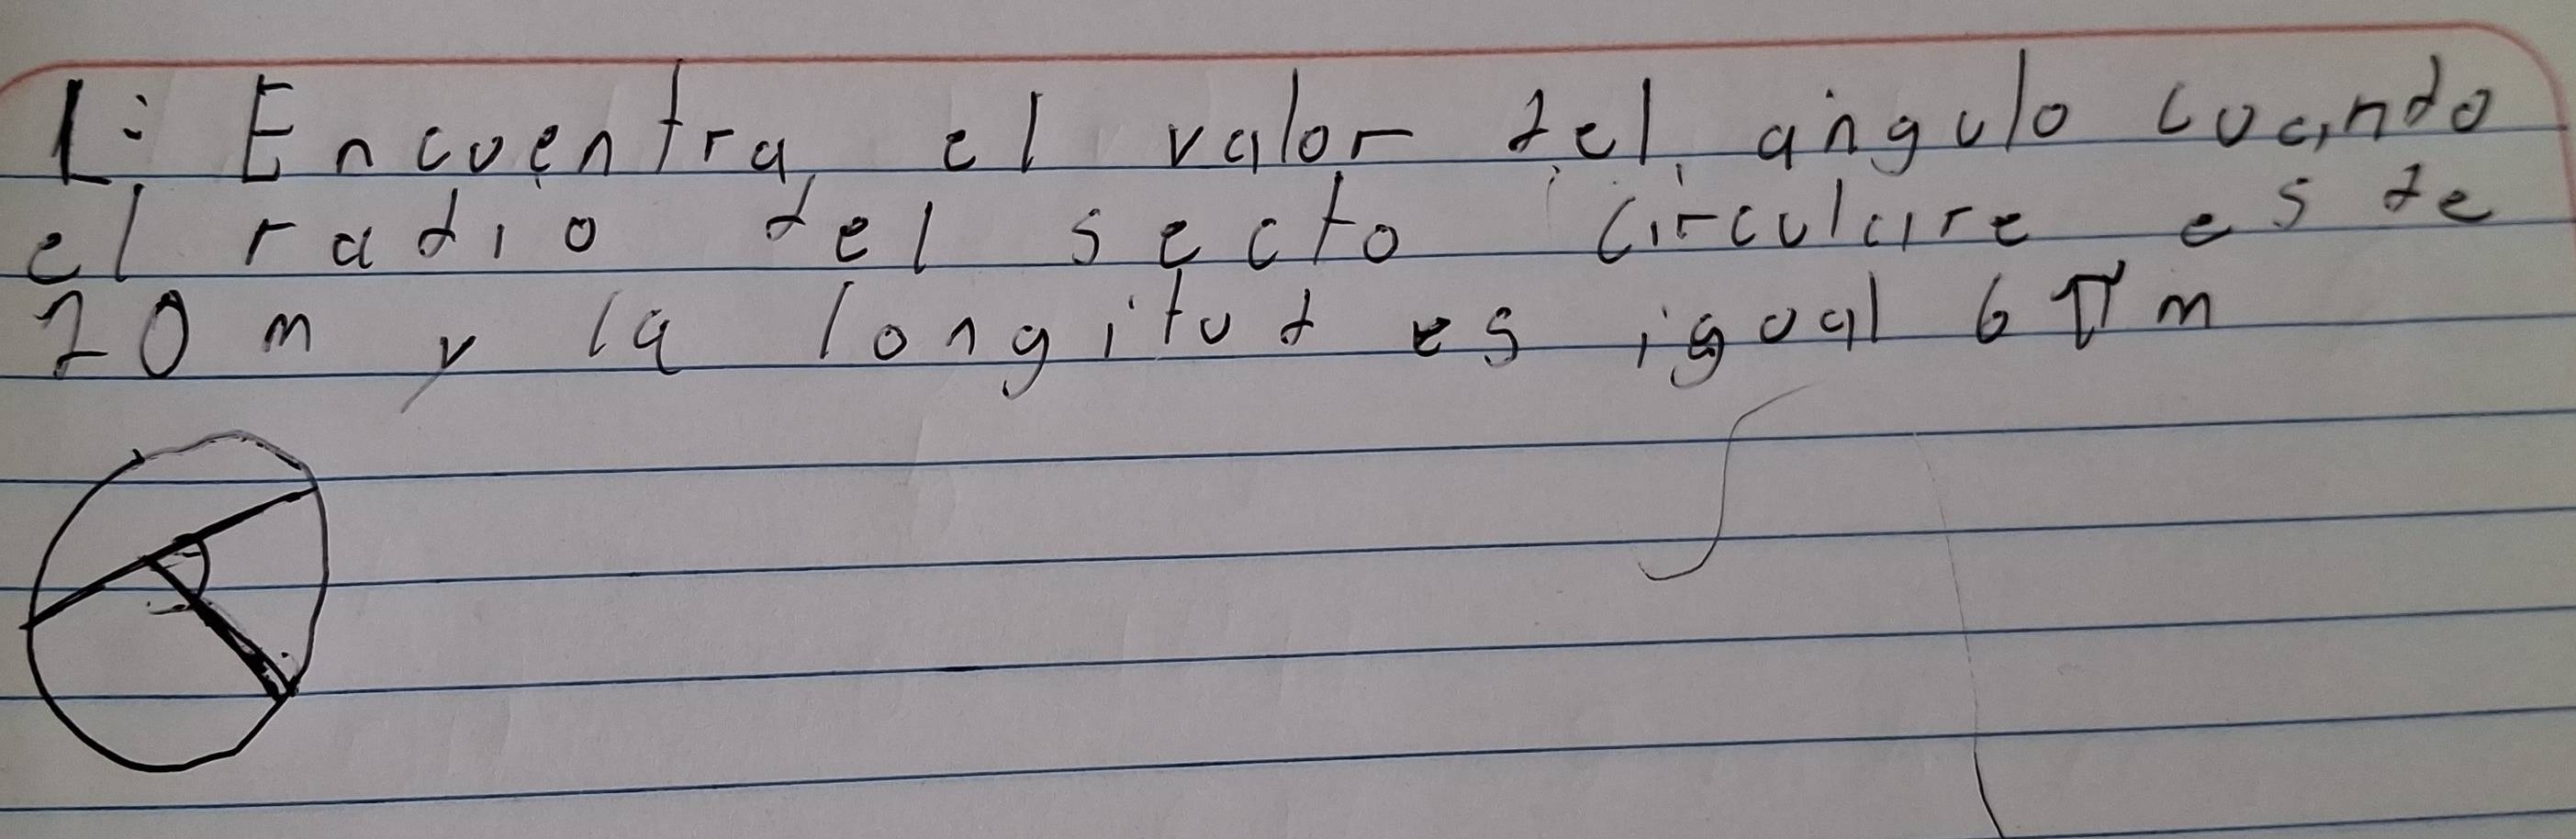 1: Encuentra el valor del angulo cuando
el radio del secto circulare es de
20 m y la longitud es igual 6 π m